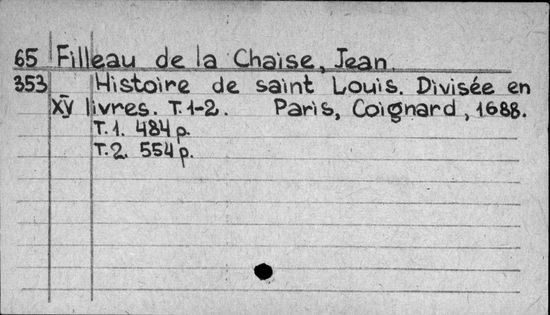 65 Filleau de la Chaise, Jean.
353 Histoire de saint Louis. Divisée en
XV livres. T.1-2. Paris, Coignard, 1688.
T.1. 484 p.
T.2. 554 p.